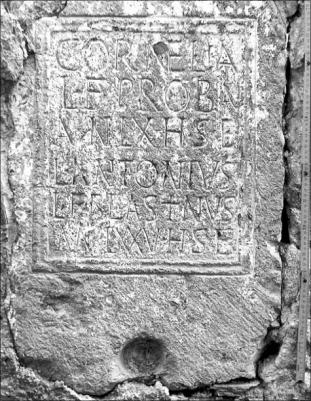 CORNELIA
L F PROBA
AN LX H S E
L ANTONIVS
L F BLASTINVS
H S E